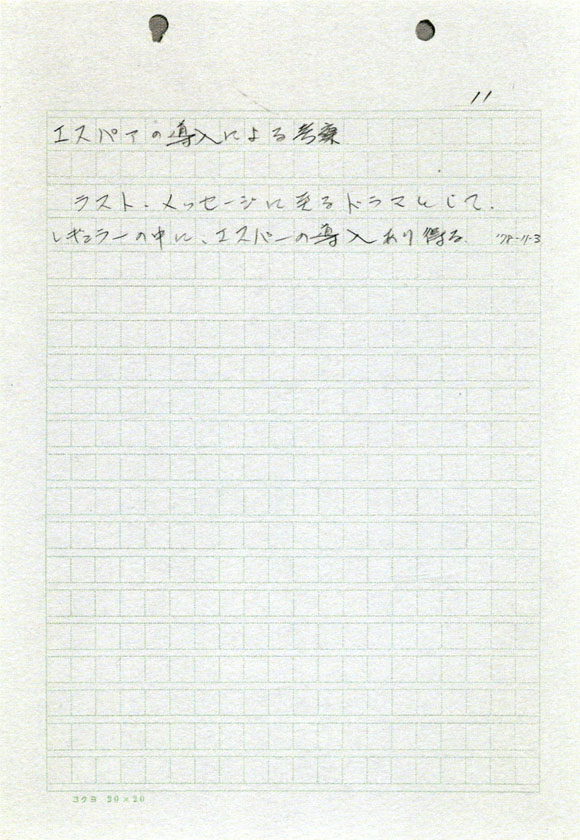 11
エスパアの導入による考察
ラスト・メッセージに至るドラマとして、
レギュラーの中に、エスパーの導入あり得る。 '78-11-3
コクヨ 20×20